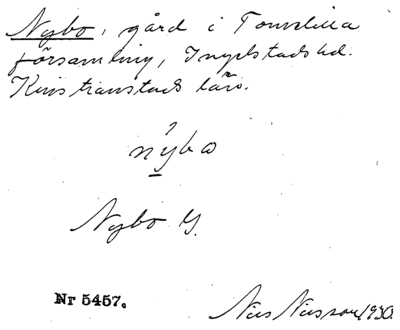 Nybo, gård i Tomelilla
församling, Ingelstads hd.
Kristianstads län.
nybo
Nybo G.
Nr 5457.
Nils Nilsson, 1930.